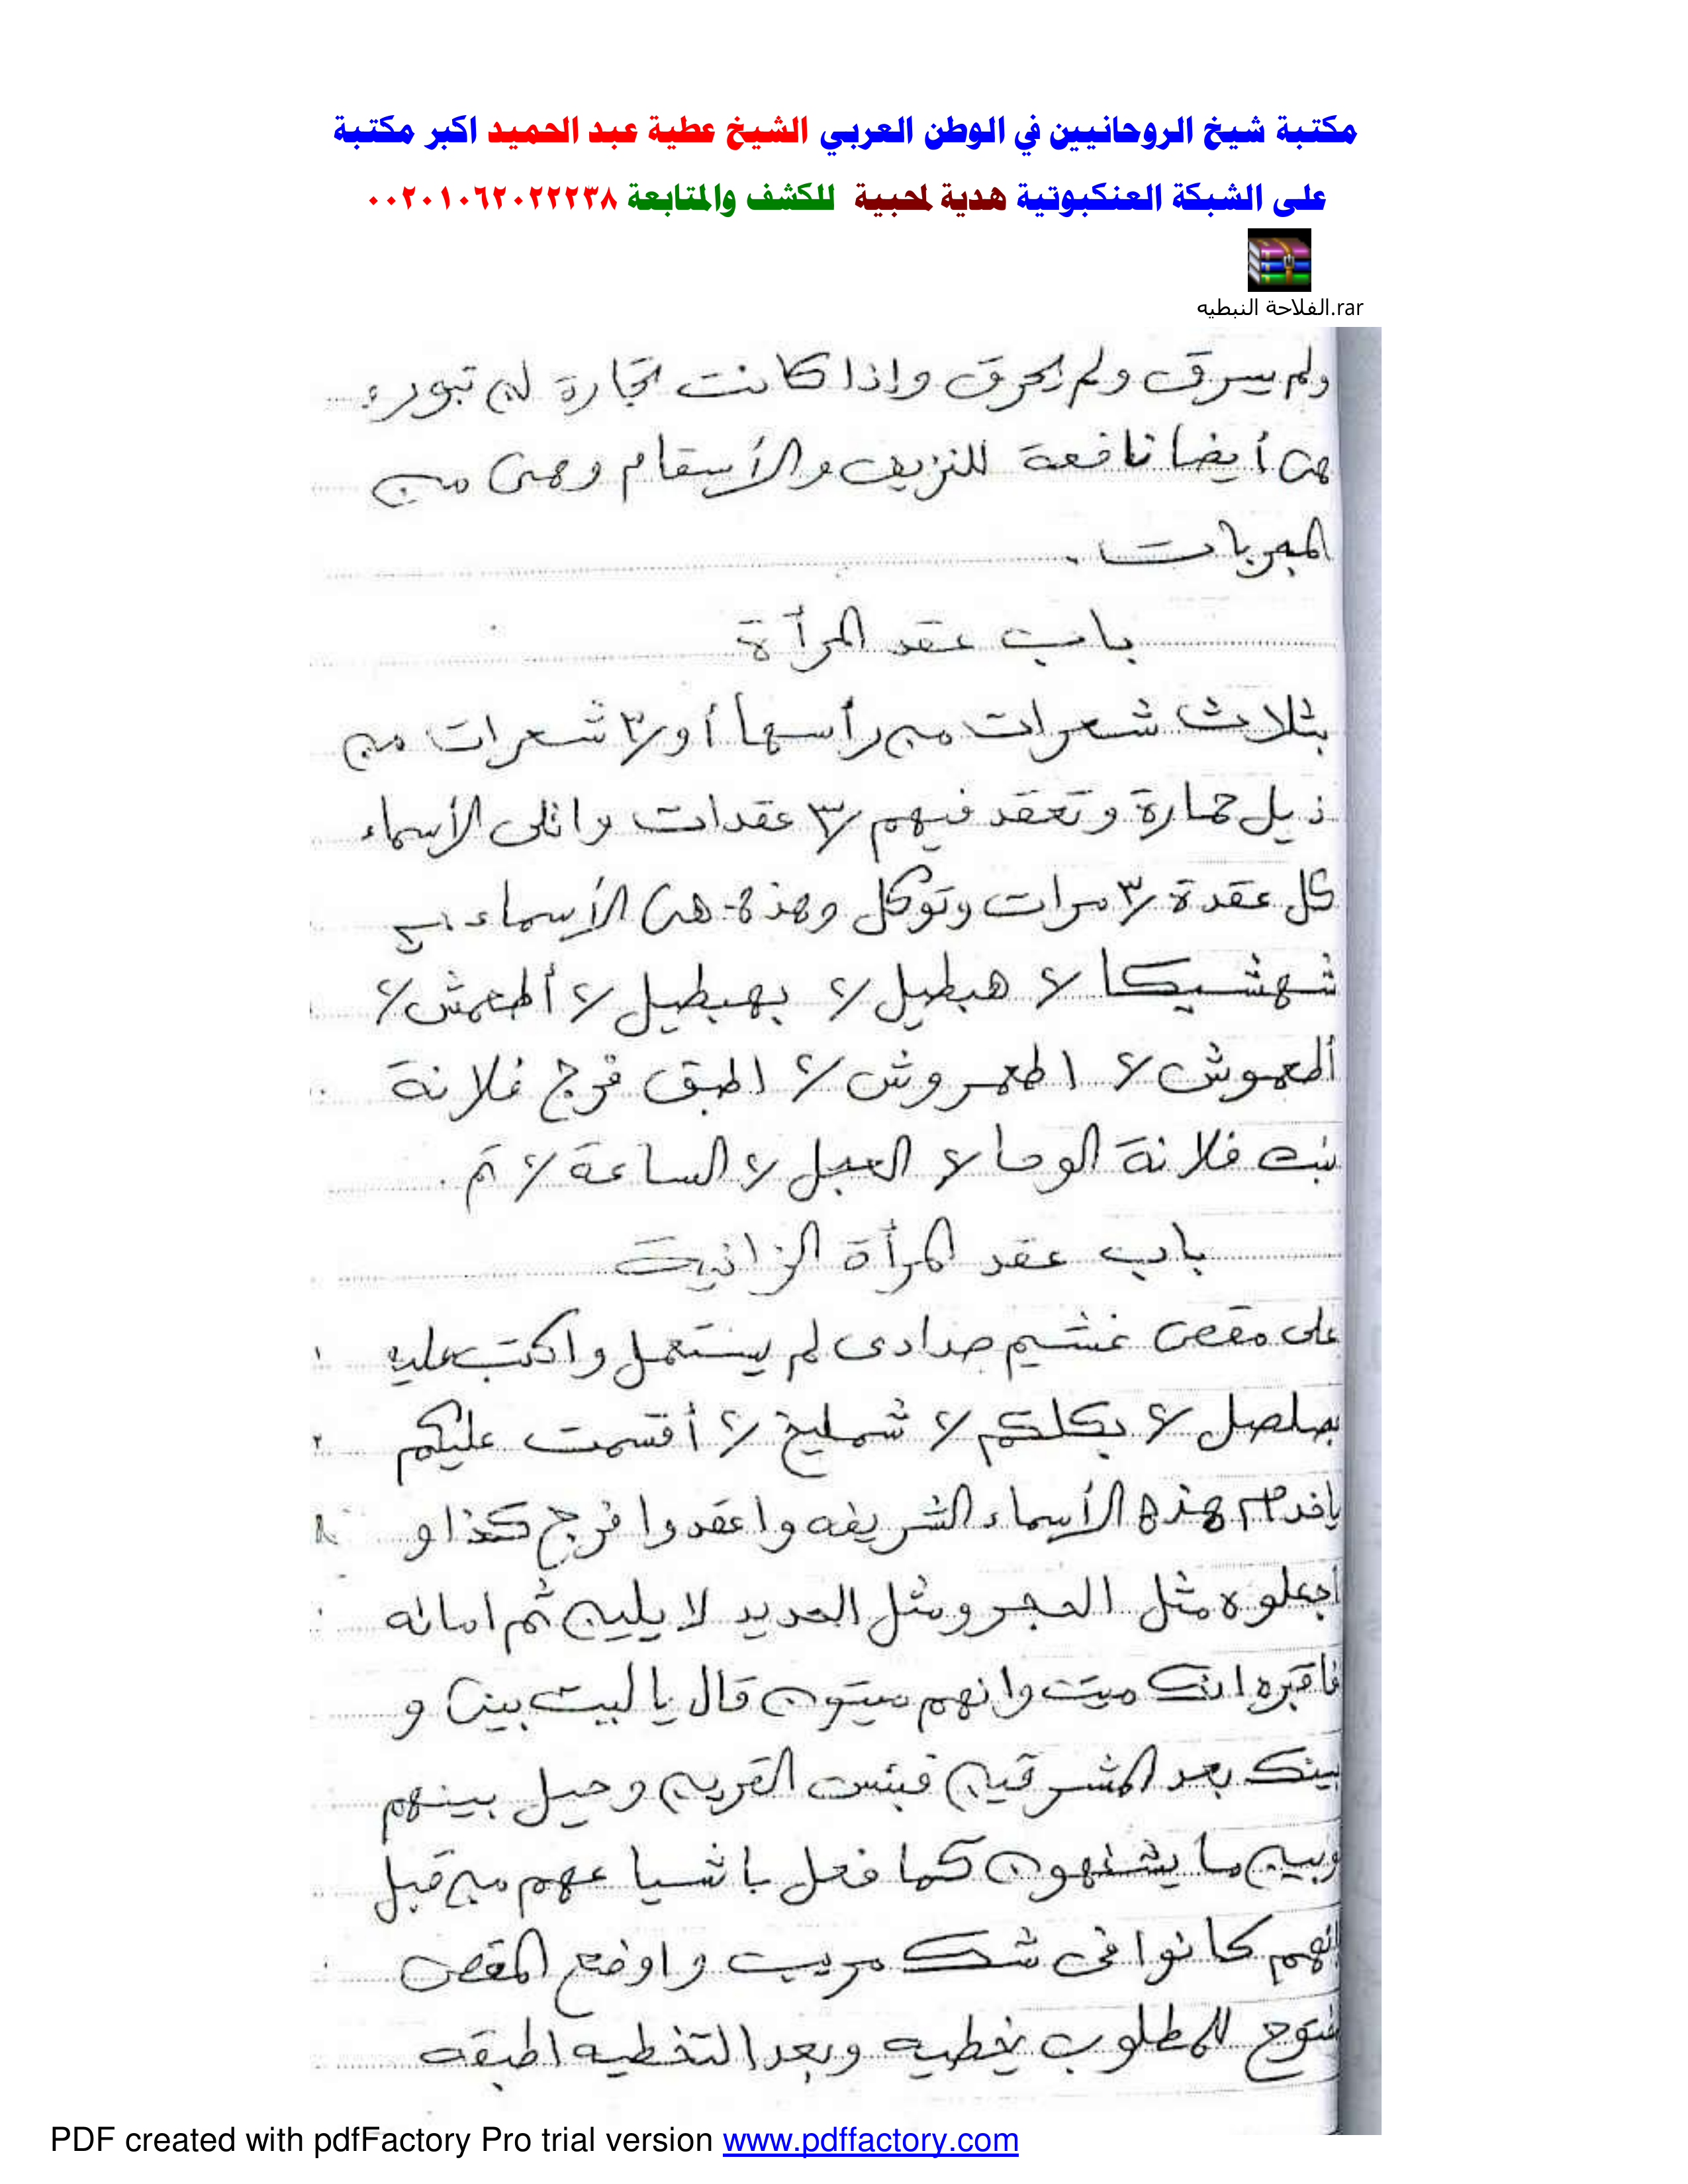 مكتبة شيخ الروحانيين في الوطن العربي الشيخ عطية عبد الحميد اكبر مكتبة
على الشبكة العنكبوتية هدية لمحبية للكشف والمتابعة ٠٠٢٠١٠٦٢٠٢٢٢٣٨
الفلاحة النبطيه.rar
ولم يسرق ولم يحرق واذا كانت تجارة لن تبور
هى أيضا نافعة للنزيف والأسقام وهى من
المجربات .
باب عقد المرأة
بثلاث شعرات من رأسها أو ٣ شعرات من
ذيل حمارة وتعقد فيهم ٣ عقدات واتلى الأسماء
كل عقدة ٣ مرات وتوكل وهذه هى الأسماء
شهشيكا ٢ هبطيل ٢ بهبطيل ٢ أطعمش ٢
ألمعموش ٢ اطعمروش ٢ اطبق فرج فلانة
بنت فلانة الوحا ٢ العجل ٢ الساعة ٢ تم .
باب عقد المرأة الزانية
على مقص غشيم حدادى لم يستعمل واكتب عليه
بصلصل ٢ بكلكم ٢ شمليخ ٢ أقسمت عليكم
ياخدام هذه الأسماء الشريفه واعقدوا فرج كذا و
اجعلوه مثل الحجر ومثل الحديد لا يلين ثم اماته
فاقبره انك ميت وانهم ميتون قال يا ليت بينى و
بينك بعد المشرقين فبئس القرين وحيل بينهم
وبين ما يشتهون كما فعل باشياعهم من قبل
انهم كانوا فى شك مريب واوضع المقص
مفتوح للمطلوب يخطيه وبعد التخطيه اطبقه
PDF created with pdfFactory Pro trial version www.pdffactory.com